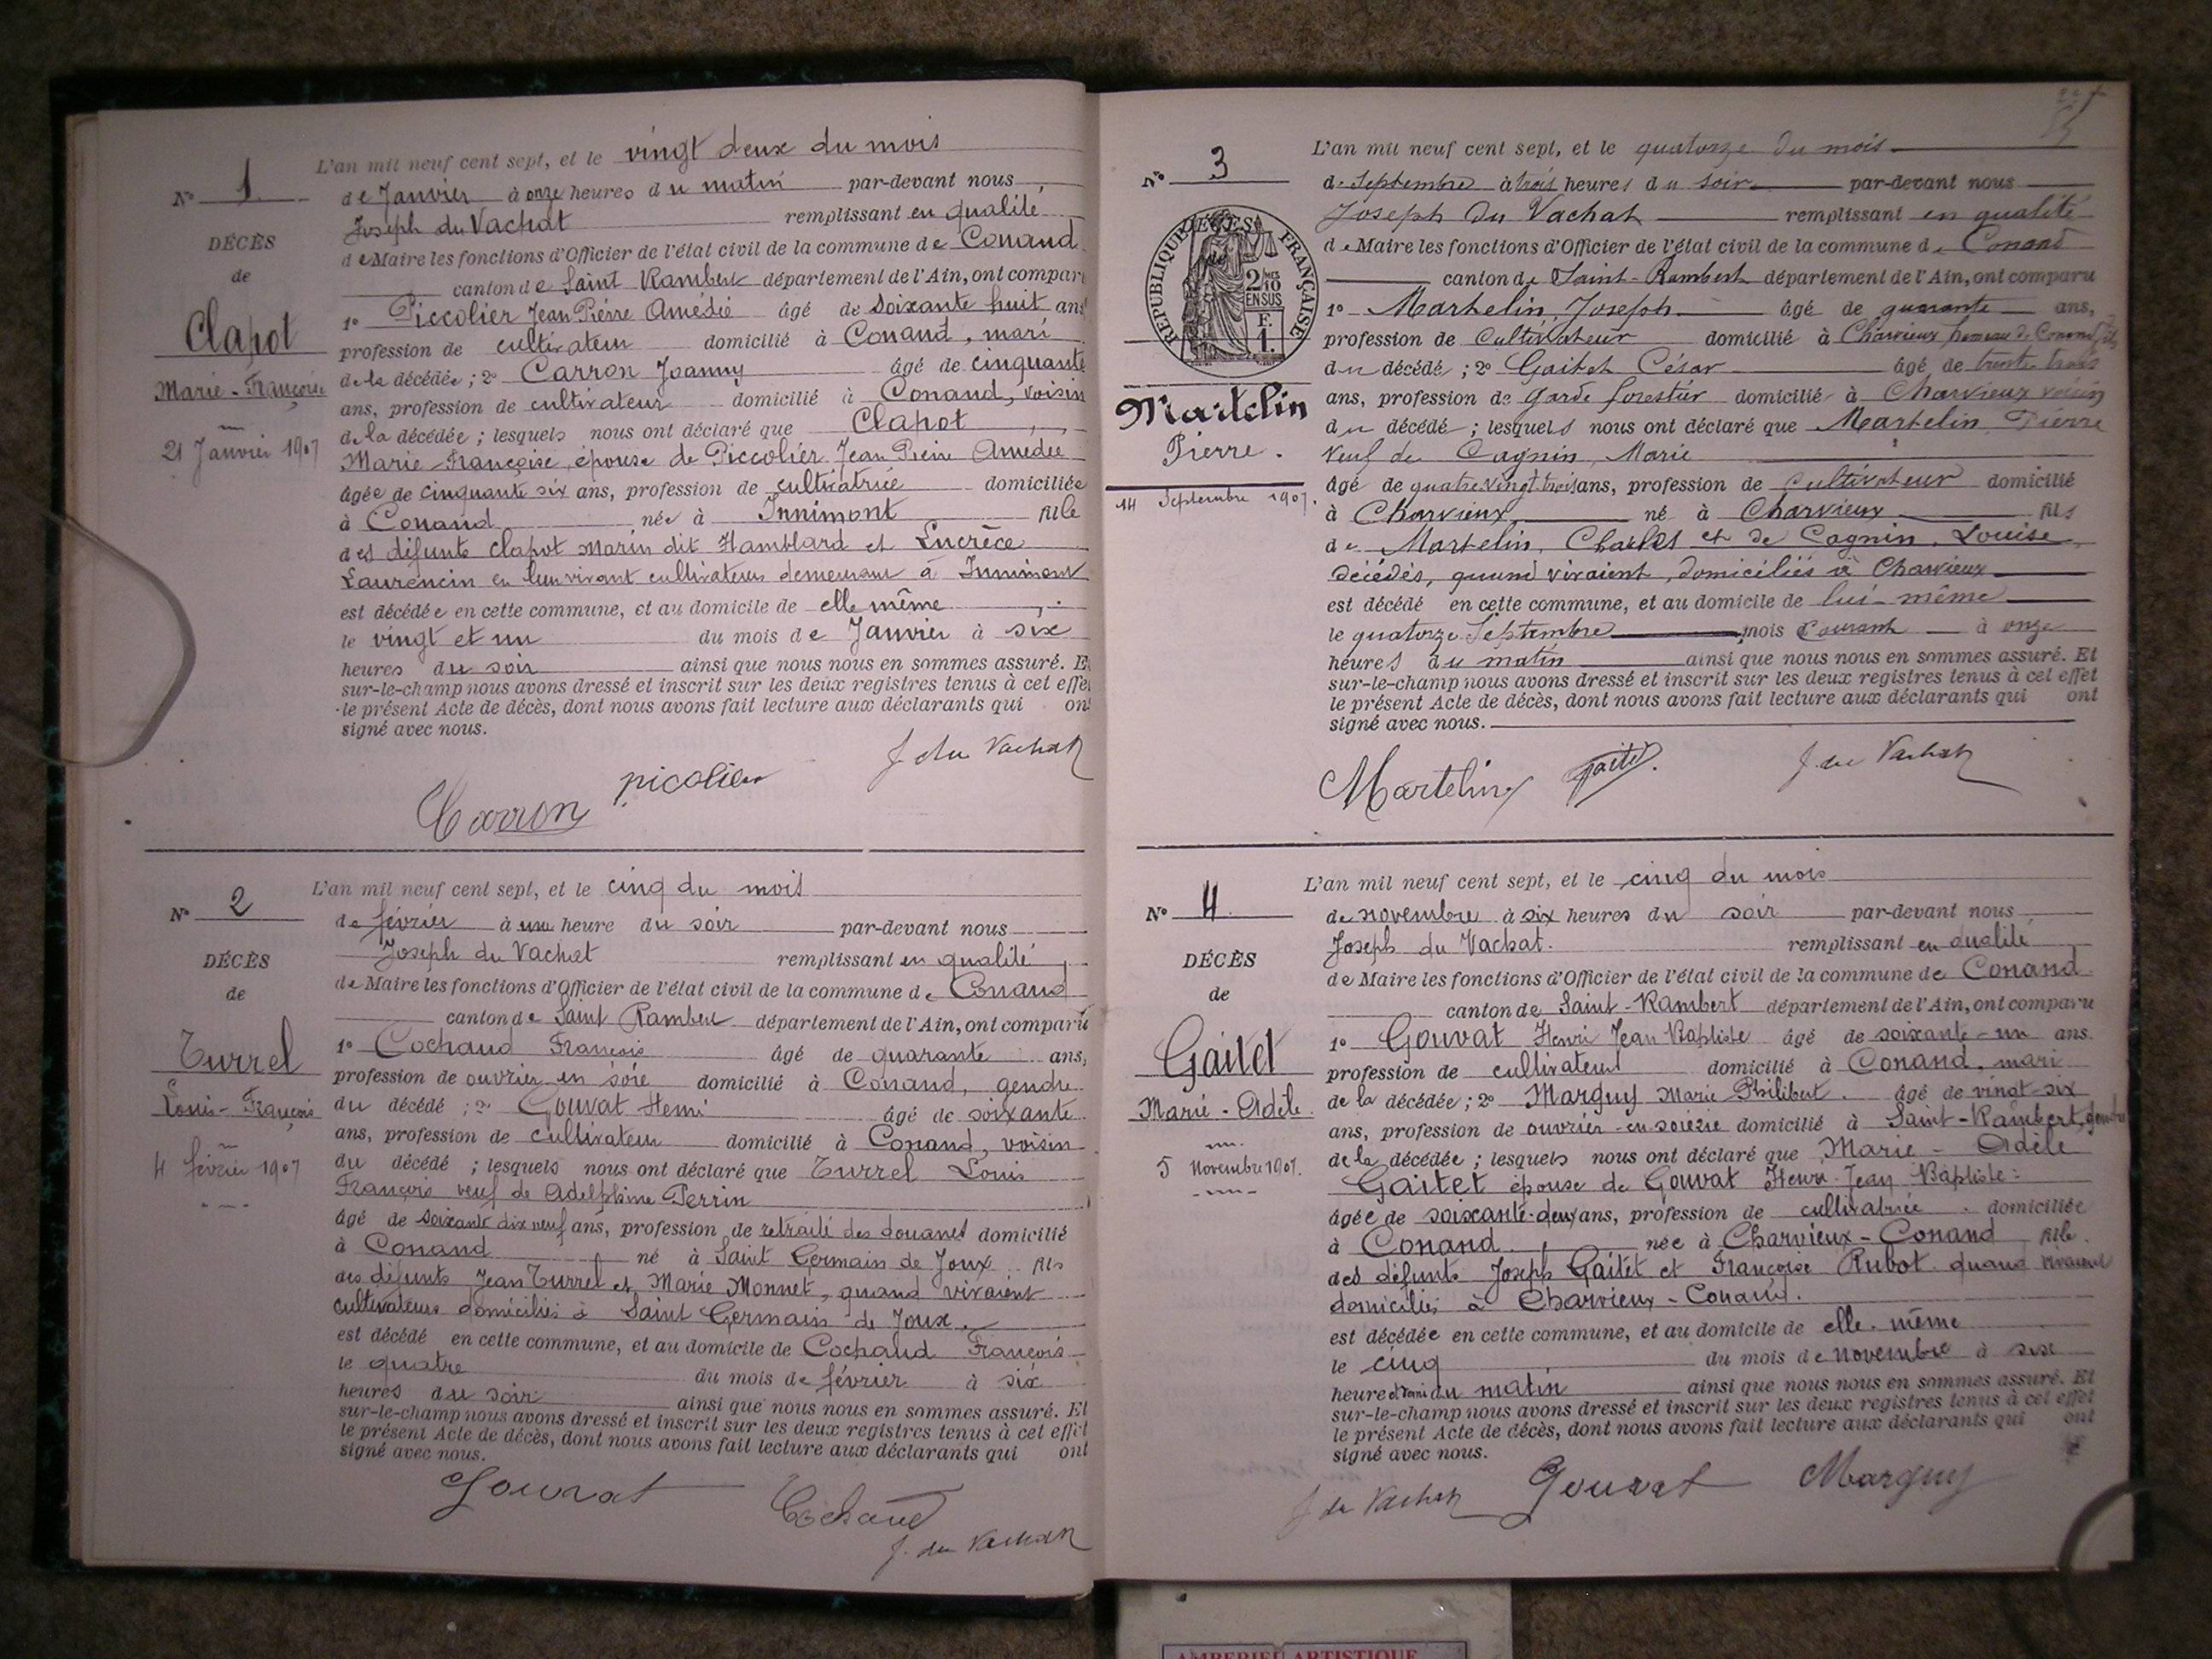 L'an mil neuf cent sept, et le vingt deux du mois
N° 1
de Janvier à onze heures du matin par-devant nous
Joseph du Vachat remplissant en qualité
DÉCÈS
de Maire les fonctions d'Officier de l'état civil de la commune de Conand
de
canton de Saint Rambert département de l'Ain, ont comparu
1° Piccolier Jean Pierre Amédié âgé de soixante huit ans
Clapot
profession de cultivateur domicilié à Conand, mari
de la décédée ; 2° Carron Joanny âgé de cinquante
Marie-Françoise
ans, profession de cultivateur domicilié à Conand, voisin
de la décédée ; lesquels nous ont déclaré que Clapot
21 Janvier 1907
Marie-Françoise, épouse de Piccolier Jean Pierre Amédée
âgée de cinquante six ans, profession de cultivatrice domiciliée
à Conand née à Innimont fille
des défunts Clapot Marin dit Hamblard et Lucrèce
Laurencin en leur vivant cultivateurs demeurant à Innimont
est décédée en cette commune, et au domicile de elle même
le vingt et un du mois de Janvier à six
heures du soir ainsi que nous nous en sommes assuré. Et
sur-le-champ nous avons dressé et inscrit sur les deux registres tenus à cet effet
le présent Acte de décès, dont nous avons fait lecture aux déclarants qui ont
signé avec nous.
J. du Vachat
picolier
Carron
L'an mil neuf cent sept, et le cinq du mois
N° 2
de février à une heure du soir par-devant nous
Joseph du Vachat remplissant en qualité
DÉCÈS
de Maire les fonctions d'Officier de l'état civil de la commune de Conand
de
canton de Saint Rambert département de l'Ain, ont comparu
1° Cochaud François âgé de quarante ans,
Turrel
profession de ouvrier en soie domicilié à Conand, gendre
Louis-François
du décédé ; 2° Gouvat Henri âgé de soixante
ans, profession de cultivateur domicilié à Conand, voisin
4 février 1907
du décédé ; lesquels nous ont déclaré que Turrel Louis
François veuf de Adelphine Perrin
âgé de soixante dix neuf ans, profession de retraité des douanes domicilié
à Conand né à Saint Germain de Joux fils
des défunts Jean Turrel et Marie Monnet, quand vivaient
cultivateurs domiciliés à Saint Germain de Joux
est décédé en cette commune, et au domicile de Cochaud François
le quatre du mois de février à six
heures du soir ainsi que nous nous en sommes assuré. Et
sur-le-champ nous avons dressé et inscrit sur les deux registres tenus à cet effet
le présent Acte de décès, dont nous avons fait lecture aux déclarants qui ont
signé avec nous.
Gouvat
Cochaud
J. du Vachat
L'an mil neuf cent sept, et le quatorze du mois
N° 3
de Septembre à trois heures du soir par-devant nous
Joseph du Vachat remplissant en qualité
de Maire les fonctions d'Officier de l'état civil de la commune de Conand
canton de Saint-Rambert département de l'Ain, ont comparu
RÉPUBLIQUE FRANÇAISE
2/10 MES
EN SUS
F.
1.
1° Martelin, Joseph âgé de quarante ans,
profession de cultivateur domicilié à Charvieux hameau de Conand, fils
du décédé ; 2° Gaitet César âgé de trente trois
ans, profession de garde forestier domicilié à Charvieux voisin
Martelin
du décédé ; lesquels nous ont déclaré que Martelin Pierre
Pierre.
veuf de Cagnin, Marie
14 Septembre 1907.
âgé de quatre vingt trois ans, profession de cultivateur domicilié
à Charvieux né à Charvieux fils
de Martelin, Charles et de Cagnin, Louise
décédés, quand vivaient, domiciliés à Charvieux
est décédé en cette commune, et au domicile de lui-même
le quatorze Septembre mois courant à onze
heures du matin ainsi que nous nous en sommes assuré. Et
sur-le-champ nous avons dressé et inscrit sur les deux registres tenus à cet effet
le présent Acte de décès, dont nous avons fait lecture aux déclarants qui ont
signé avec nous.
Martelin Gaitet J. du Vachat
L'an mil neuf cent sept, et le cinq du mois
N° 4
de novembre à six heures du soir par-devant nous
Joseph du Vachat. remplissant en qualité
DÉCÈS
de Maire les fonctions d'Officier de l'état civil de la commune de Conand
de
canton de Saint-Rambert département de l'Ain, ont comparu
1° Gouvat Henri Jean Baptiste âgé de soixante-un ans.
Gaitet
profession de cultivateur domicilié à Conand, mari
Marie-Adèle.
de la décédée ; 2° Marguy Marie Philibert. âgé de vingt-six
ans, profession de ouvrier-en soierie domicilié à Saint-Rambert, gendre
5 Novembre 1907.
de la décédée ; lesquels nous ont déclaré que Marie-Adèle
Gaitet épouse de Gouvat Henri Jean Baptiste
âgée de soixante-deux ans, profession de cultivatrice domiciliée
à Conand née à Charvieux-Conand fille
des défunts Joseph Gaitet et Françoise Rubot quand vivaient
domiciliés à Charvieux-Conand.
est décédée en cette commune, et au domicile de elle-même
le cinq du mois de novembre à six
heures et demi du matin ainsi que nous nous en sommes assuré. Et
sur-le-champ nous avons dressé et inscrit sur les deux registres tenus à cet effet
le présent Acte de décès, dont nous avons fait lecture aux déclarants qui ont
signé avec nous.
J. du Vachat Gouvat Marguy
AMBERIEU ARTISTIQUE